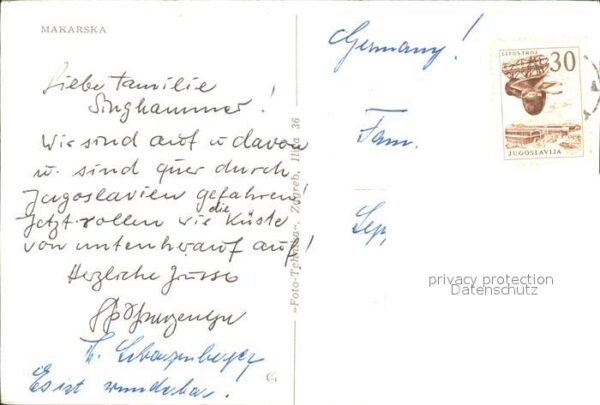 MAKARSKA
Liebe Familie
Singhammer!
Wir sind auf u davon
u. sind quer durch
Jugoslavien gefahren!
Jetzt rollen wir die Küste
von unten herauf auf!
Herzliche Grüsse
Es ist wunderbar.
»Foto-Tehnika«, Zagreb, Ilica 36
Germany!
Fam.
LITOSTROJ
30
JUGOSLAVIJA
privacy protection
Datenschutz